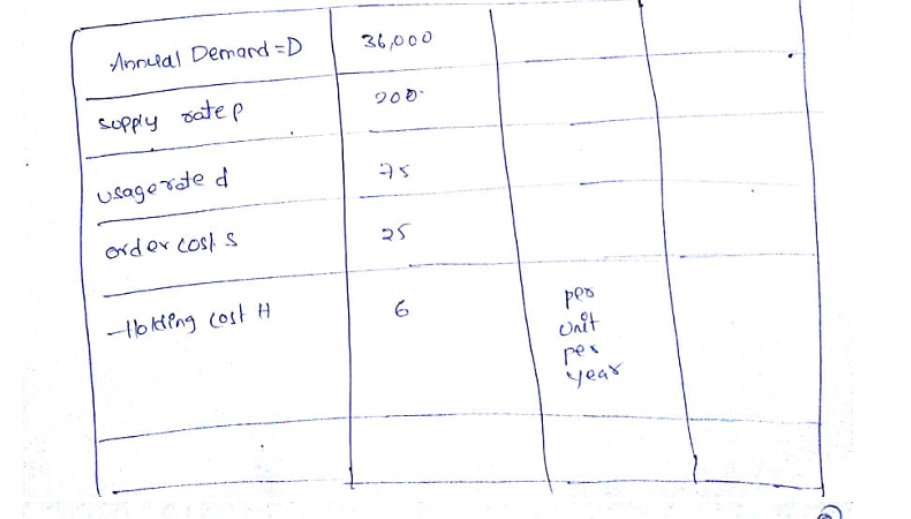 Annual Demand = D 36,000
supply rate p 200
usage rate d 75
order cost S 25
Holding cost H 6 per
unit
per
year